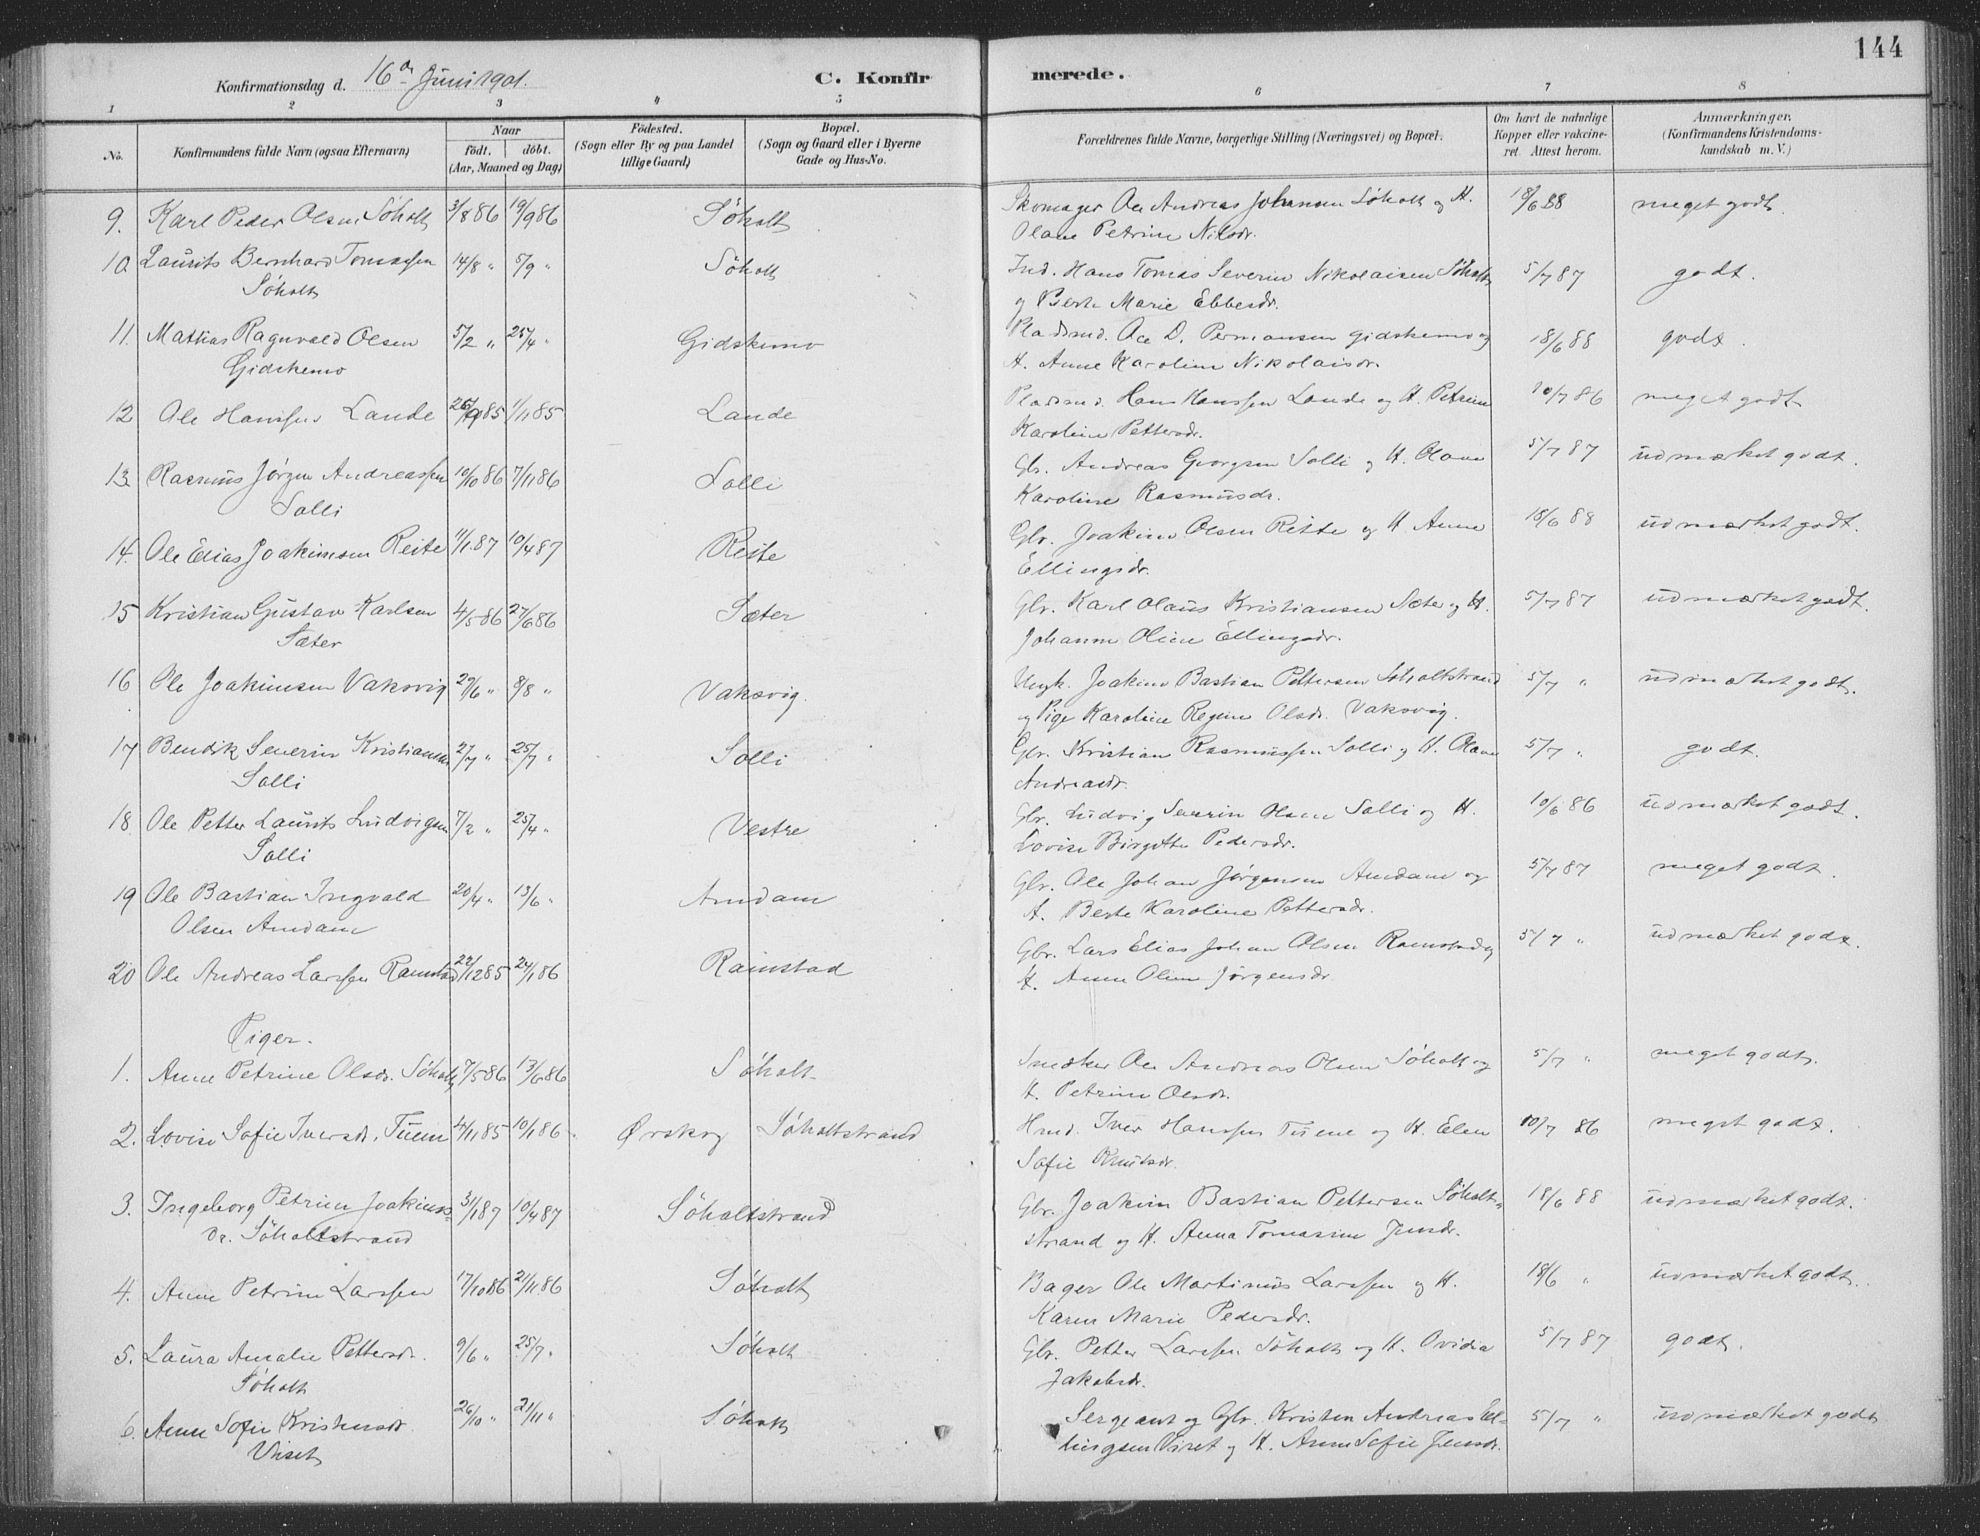 144
Konfirmationsdag d. 16de Juni 1901.
C. Konfirmerede.
1 2 3 4 5 6 7 8
No.
Konfirmandens fulde Navn (ogsaa Efternavn)
Naar
födt. döbt.
(Aar, Maaned og Dag)
Födested.
(Sogn eller By og paa Landet
tillige Gaard)
Bopæl.
(Sogn og Gaard eller i Byerne
Gade og Hus-No.
Forældrenes fulde Navne, borgerlige Stilling (Næringsvei) og Bopæl.
Om havt de naturlige
Kopper eller vakcine-
ret. Attest herom.
Anmærkninger.
(Konfirmandens Kristendoms-
kundskab m. V.)
9. Karl Peder Olsen Söholt 3/8 86 19/9 86 Söholt Skomager Ole Andreas Johansen Söholt og H. 18/6 88 meget godt.
Olave Petrine Nilsdr.
10 Laurits Bernhard Tomassen 14/8 " 5/9 " Söholt Ind. Hans Tomas Severin Nikolaisen Söholt 5/7 87 godt.
Söholt og Berte Marie Ebbesdr.
11. Mathias Ragnvald Olsen 5/2 " 25/4 " Gidskemo Pladsmd. Ole D. Permansen Gidskemo og 18/6 88 godt.
Gidskemo H. Anne Karoline Nikolaisdr.
12 Ole Hanssen Lande 26/9 85 1/11 85 Lande Pladsmd. Hans Hanssen Lande og H. Petrine 10/7 86 meget godt
Karoline Pettersdr.
13. Rasmus Jörgen Andreassen 10/10 86 7/11 86 Solli Gbr. Andreas Georgsen Solli og H. Olave 5/7 87 udmærket godt.
Solli Karoline Rasmusdr.
14. Ole Elias Joakimsen Reite 11/1 87 10/4 87 Reite Gbr. Joakim Olsen Reite og H. Anne 18/6 88 udmærket godt.
Ellingsdr.
15 Kristian Gustav Karlsen 4/5 86 27/6 86 Sæter Gbr. Karl Olaus Kristiansen Sæter og H. 5/7 87 udmærket godt.
Sæter Johanne Oline Ellingsdr.
16 Ole Joakimsen Vaksvig 29/6 " 8/8 " Vaksvig. Ungk. Joakim Bastian Pettersen Söholtstrand 5/7 " udmærket godt.
og Pige Karoline Regine Olsdr. Vaksvig.
17 Bendik Severin Kristiansen 2/7 " 25/7 " Solli Gbr. Kristian Rasmussen Solli og H. Olave 5/7 " godt.
Solli Andreasdr.
18. Ole Petter Laurits Ludvigsen 7/2 " 25/4 " Vestre Gbr. Ludvig Severin Olsen Solli og H. 10/6 86 udmærket godt.
Solli Lovise Birgitte Pedersdr.
19 Ole Bastian Ingvald 20/4 " 13/6 " Amdam Gbr. Ole Johan Jörgensen Amdam og 5/7 87 meget godt.
Olsen Amdam H. Berte Karoline Pettersdr.
20 Ole Andreas Larssen Ramstad 22/12 85 24/1 86 Ramstad Gbr. Lars Elias Johan Olsen Ramstad og 5/7 " udmærket godt.
H. Anne Oline Jörgensdr.
Piger.
1. Anne Petrine Olsdr. Söholt 7/5 86 13/6 86 Söholt Snedker Ole Andreas Olsen Söholt og 5/7 " meget godt.
H. Petrine Olsdr.
2. Lovise Sofie Iversdr. Tuen 4/11 85 10/1 86 Ørskog Söholtstrand Hmd. Iver Hanssen Tuene og H. Elen 10/7 86 meget godt.
Sofie Knutsdr.
3. Ingeborg Petrine Joakims- 3/1 87 10/4 87 Söholtstrand Gbr. Joakim Bastian Pettersen Söholt- 18/6 88 udmærket godt.
dr. Söholtstrand strand og H. Anna Tomasine Jensdr.
4. Anne Petrine Larssen 17/10 86 21/11 86 Söholt Bager Ole Martinus Larssen og H. 18/6 " udmærket godt.
Karen Marie Pedersdr.
5. Laura Amalie Pettersdr. 9/6 " 25/7 " Söholt Gbr. Petter Larssen Söholt og H. Ovidia 5/7 87 godt.
Söholt Jakobsdr.
6. Anne Sofie Kristensdr. 26/10 " 21/11 " Söholt Sergeant og Gbr. Kristen Andreas El- 5/7 " udmærket godt
Viset lingsen Viset og H. Anne Sofie Jensdr.